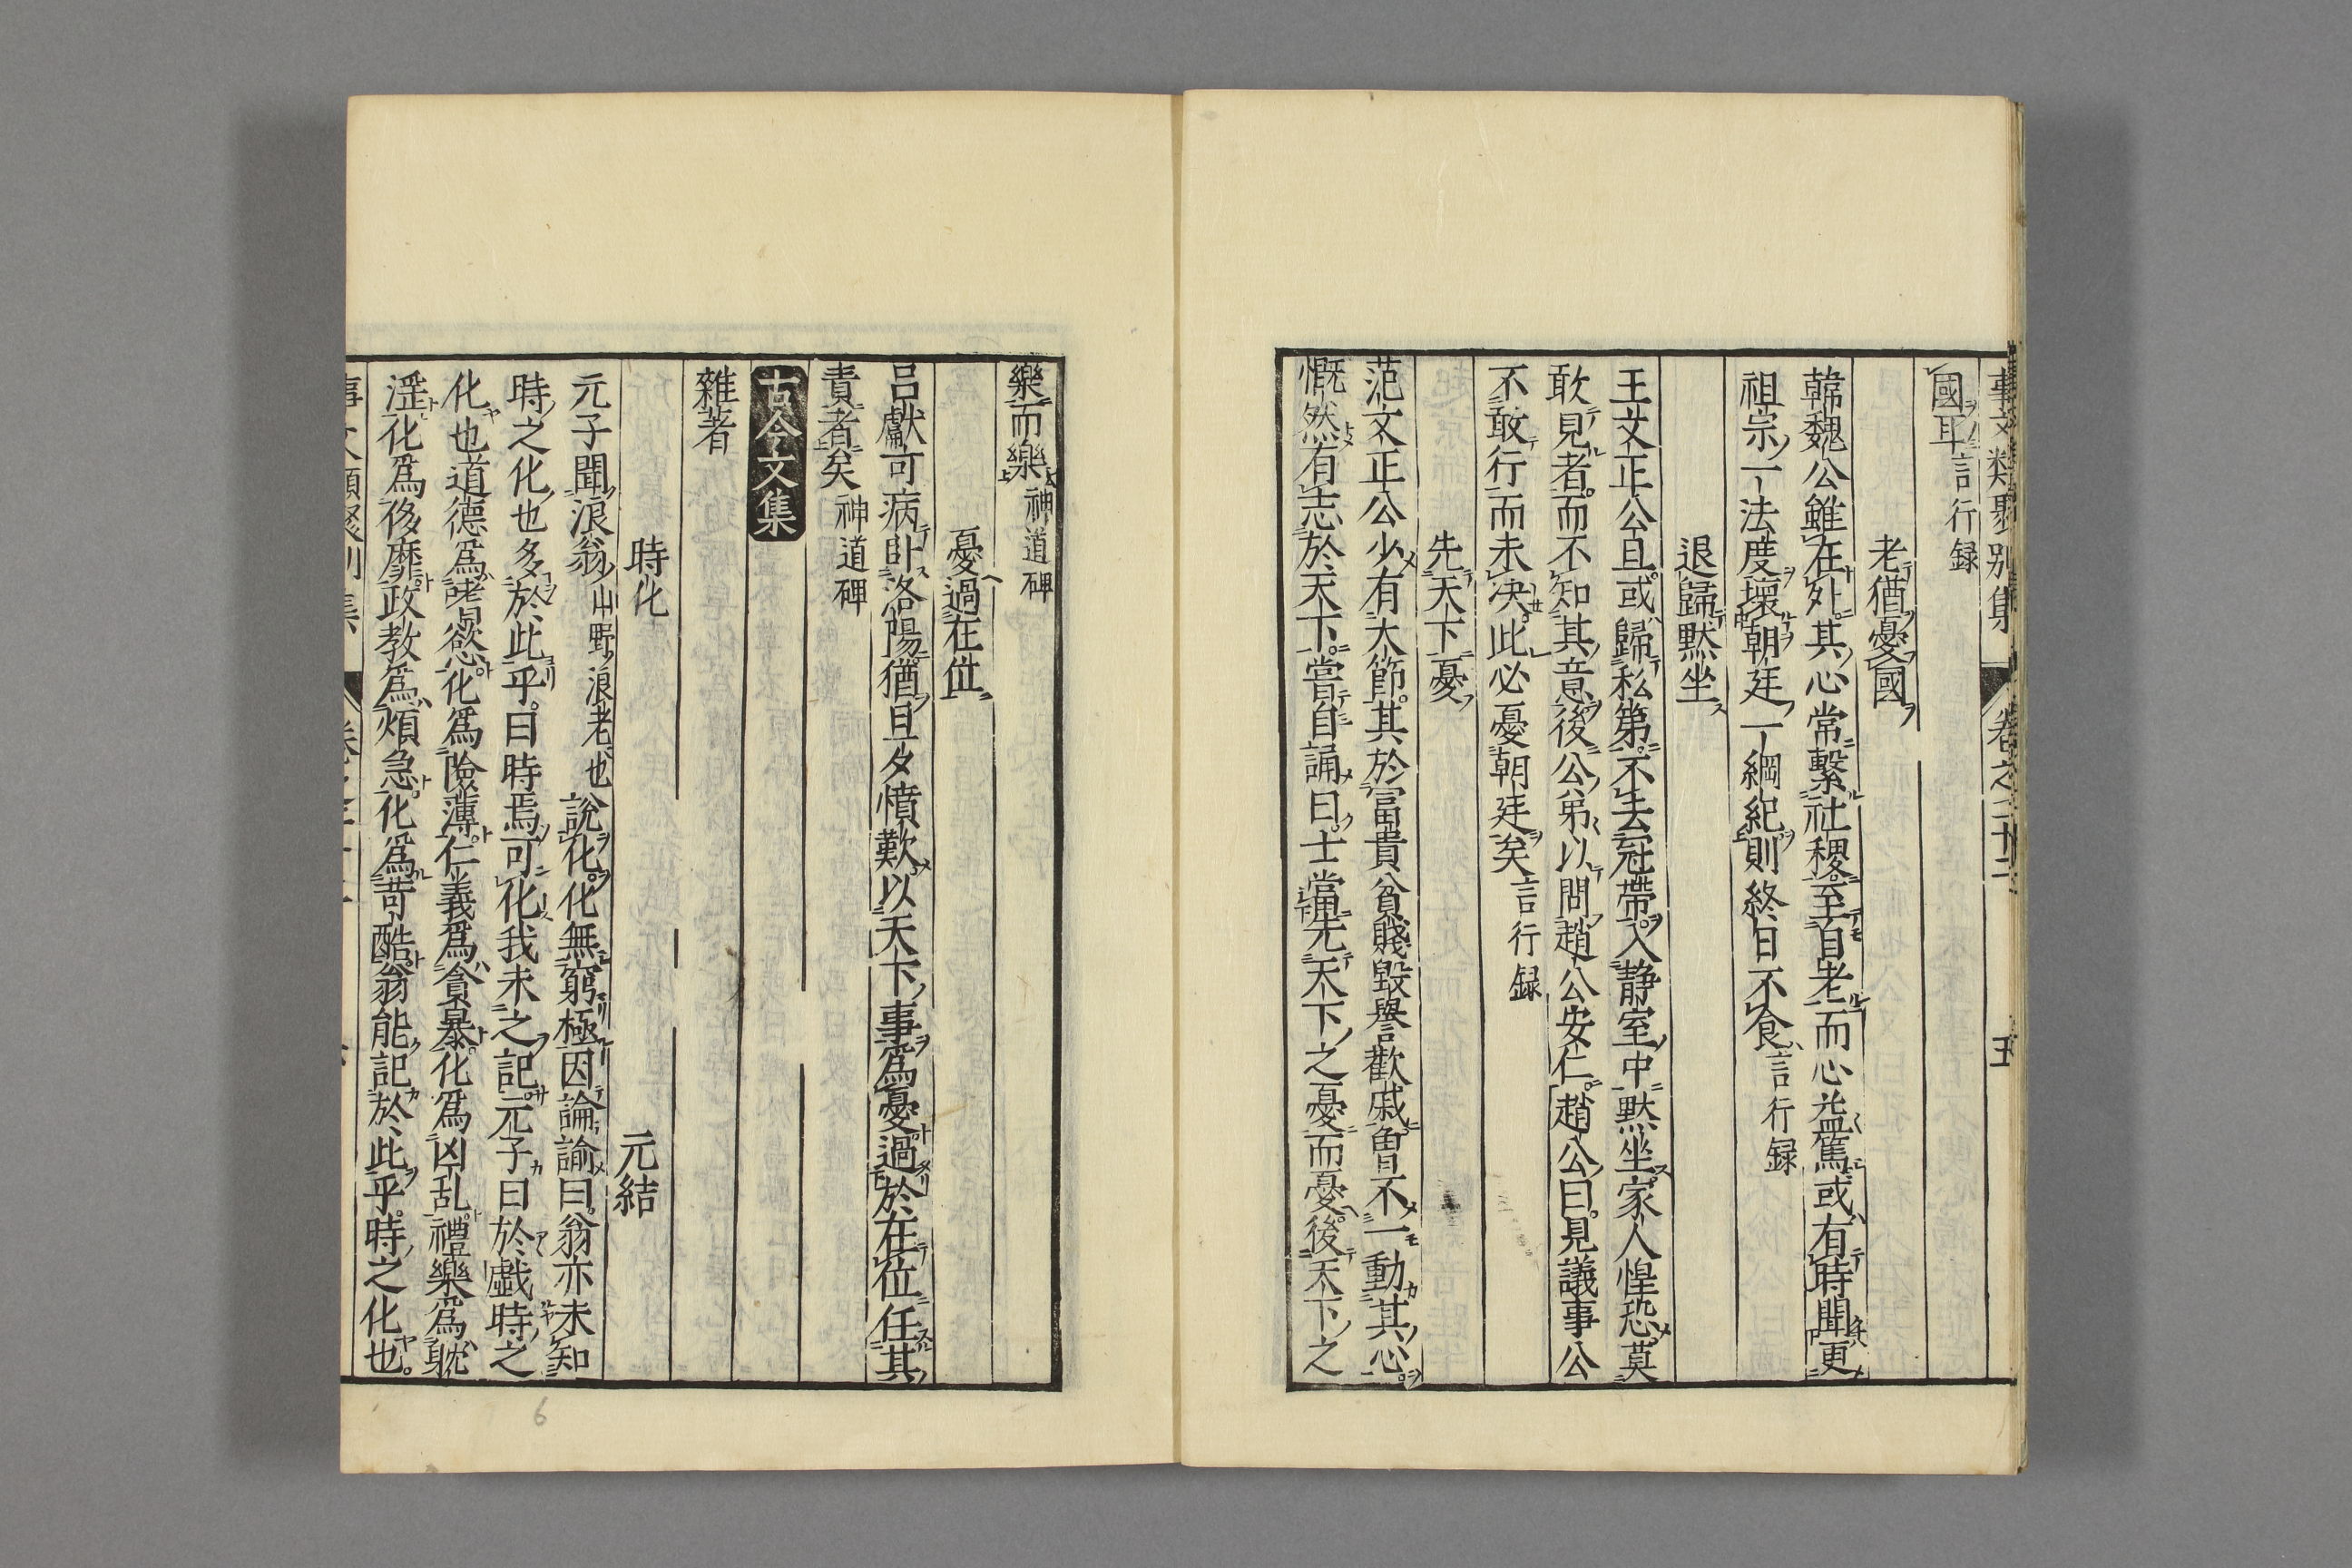 事文類聚別集 卷之二十二 五
國耳 言行録
老猶憂國
韓魏公雖在外其心常繫社稷至自老而心益篤或有時聞更
祖宗一法度壞朝廷一綱紀則終日不食 言行録
退歸默坐
王文正公旦或歸私第不去冠帶入静室中默坐家人惶恐莫
敢見者而不知其意後公弟以問趙公安仁趙公曰見議事公
不敢行而未决此必憂朝廷矣 言行録
先天下憂
范文正公少有大節其於富貴貧賤毀譽歡戚曾不一動其心
慨然有志於天下嘗自誦曰士當先天下之憂而憂後天下之
樂而樂 神道碑
憂過在位
呂獻可病卧洛陽猶旦夕憤歎以天下事為憂過於在位任其
責者矣 神道碑
古今文集
雜著
時化 元結
元子聞浪翁 山野浪老也 說化化無窮極因論諭曰翁亦未知
時之化也多於此乎曰時焉可化我未之記元子曰於戲時之
化也道德爲嗜慾化爲險薄仁義爲貪暴化爲凶乱禮樂爲耽
淫化爲侈靡政教爲煩急化爲苛酷翁能記於此乎時之化也